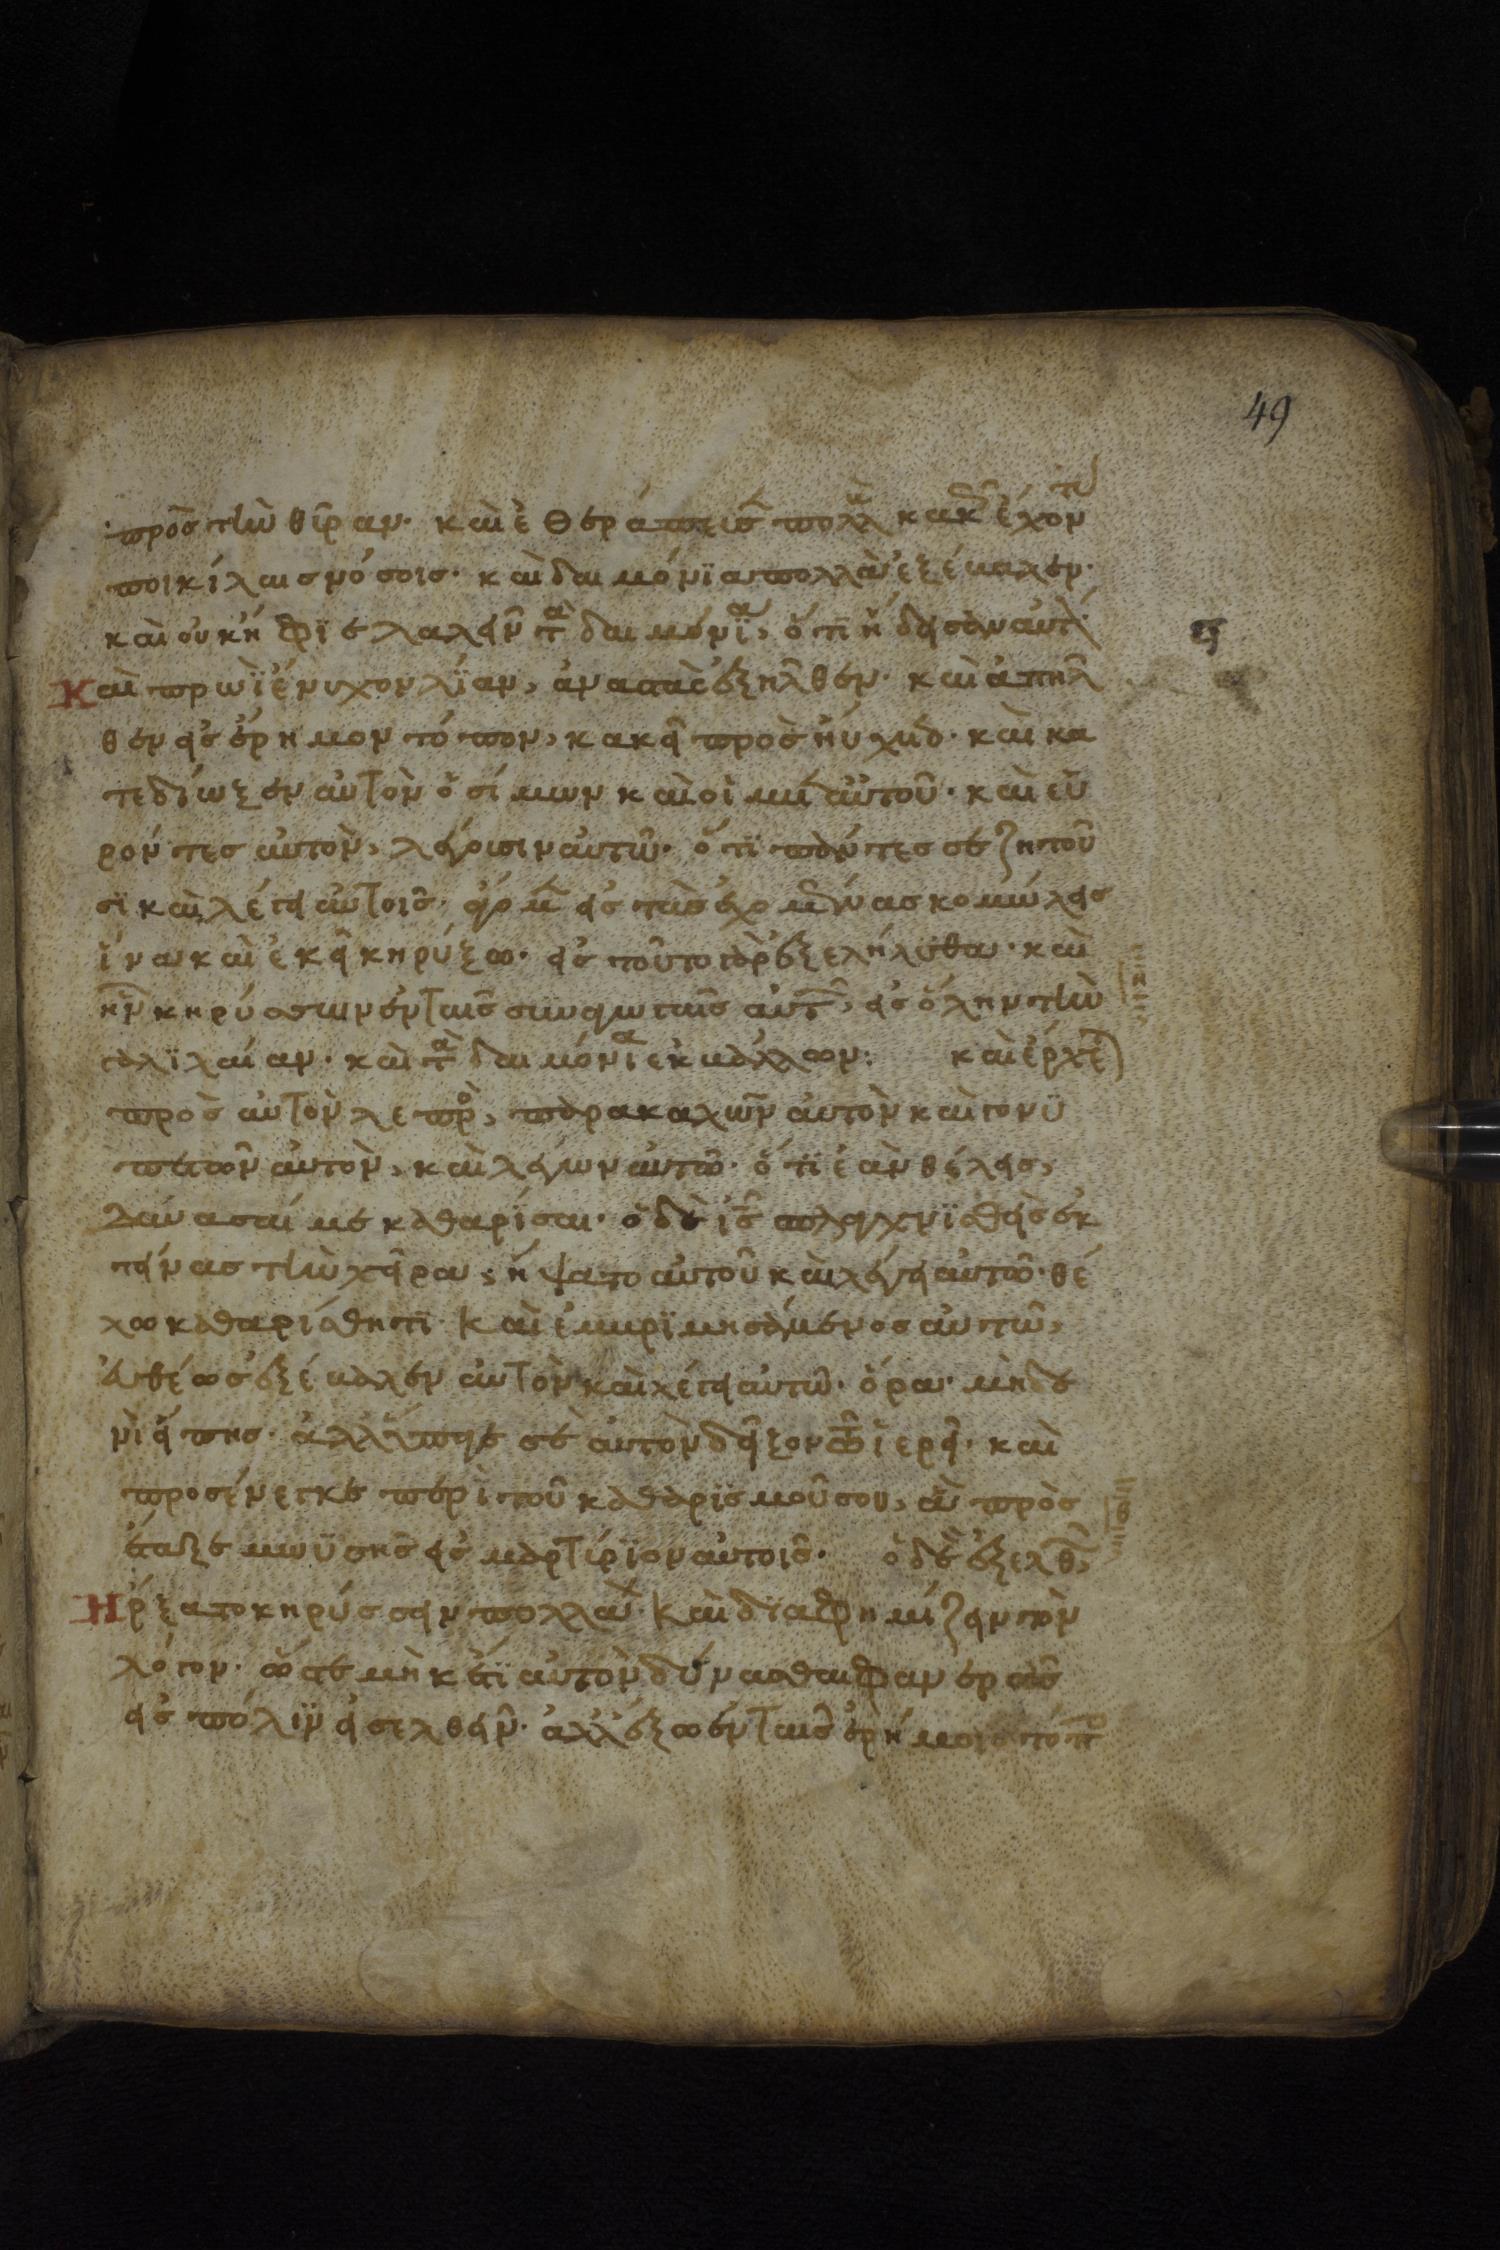 49
πρὸς τὴν θύραν· καὶ ἐθεράπευσ πολλ κακ ἔχον
ποικίλαις νόσοις· καὶ δαιμόνϊα πολλὰ ἐξέβαλεν·
καὶ οὐκ ἤφϊε λαλεῖν τὰ δαιμόνϊα, ὅτϊ ἤδεισαν αὐτ
Καὶ πρωῒ ἔνυχον λΐαν, ἀναστὰς ἐξῆλθεν· καὶ ἀπηλ
θεν εἰς ἔρημον τόπον, κακεῖ προσηύχετο· καὶ κα
τεδίωξεν αὐτὸν ὁ σίμων καὶ οἱ μετ αὐτοῦ· καὶ εὑ
ρόντες αὐτὸν, λέγουσιν αὐτῶ· ὅτϊ πάντες σε ζητοῦ
σϊ καὶ λέγει αὐτοῖς· ἄγομ εἰς τὰς ἐχομένας κομώλεις
ἵνα καὶ ἐκεῖ κηρύξω· εἰς τοῦτο γὰρ ἐξελήλυθα· καὶ
ἦν κηρύσσων ἐν ταῖς συναγωγαῖς αὐτ, εἰς ὅλην τὴν
γαλϊλαίαν· καὶ τὰ δαιμόνια ἐκβάλλων: καὶ ἔρχε
πρὸς αὐτὸν λεπρὸ, παρακαλῶν αὐτὸν καὶ γονϋ
πετῶν αὐτὸν, καὶ λέγων αὐτῶ· ὅτϊ ἐὰν θέλεις,
δύνασαί με καθαρΐσαι· ὁ δὲ ις σπλαγχνϊσθεὶς ἐκ
τείνας τὴν χεῖρα, ἥψατο αὐτοῦ καὶ λέγει αὐτῶ· θέ
λω καθαρίσθητϊ· Καὶ ἐμβρϊμησάμενος αὐτῶ,
εὐθέως ἐξέβαλεν αὐτὸν καὶ λέγει αὐτῶ· ὅρα· μὴδε
νὶ εἴπης· ἀλλ ὕπαγε σὲ αὐτὸν δεῖξον τῶ ἱερεῖ· καὶ
προσένεγκε περὶ τοῦ καθαρϊσμοῦ σου, ἃ προσ
έταξε μωϋσῆς εἰς μαρτύρϊον αὐτοῖς· ὁ δὲ ἐξελθ,
Ἤρξατο κηρύσσειν πολλὰ· Καὶ δϊαφημίζειν τὸν
λόγον· ὥστε μὴκέτϊ αὐτὸν δύνασθαι φανερῶς
εἰς πόλϊν εἰσελθεῖν· ἀλλ ἔξω ἐν ταῖς ἐρήμοις τόπο